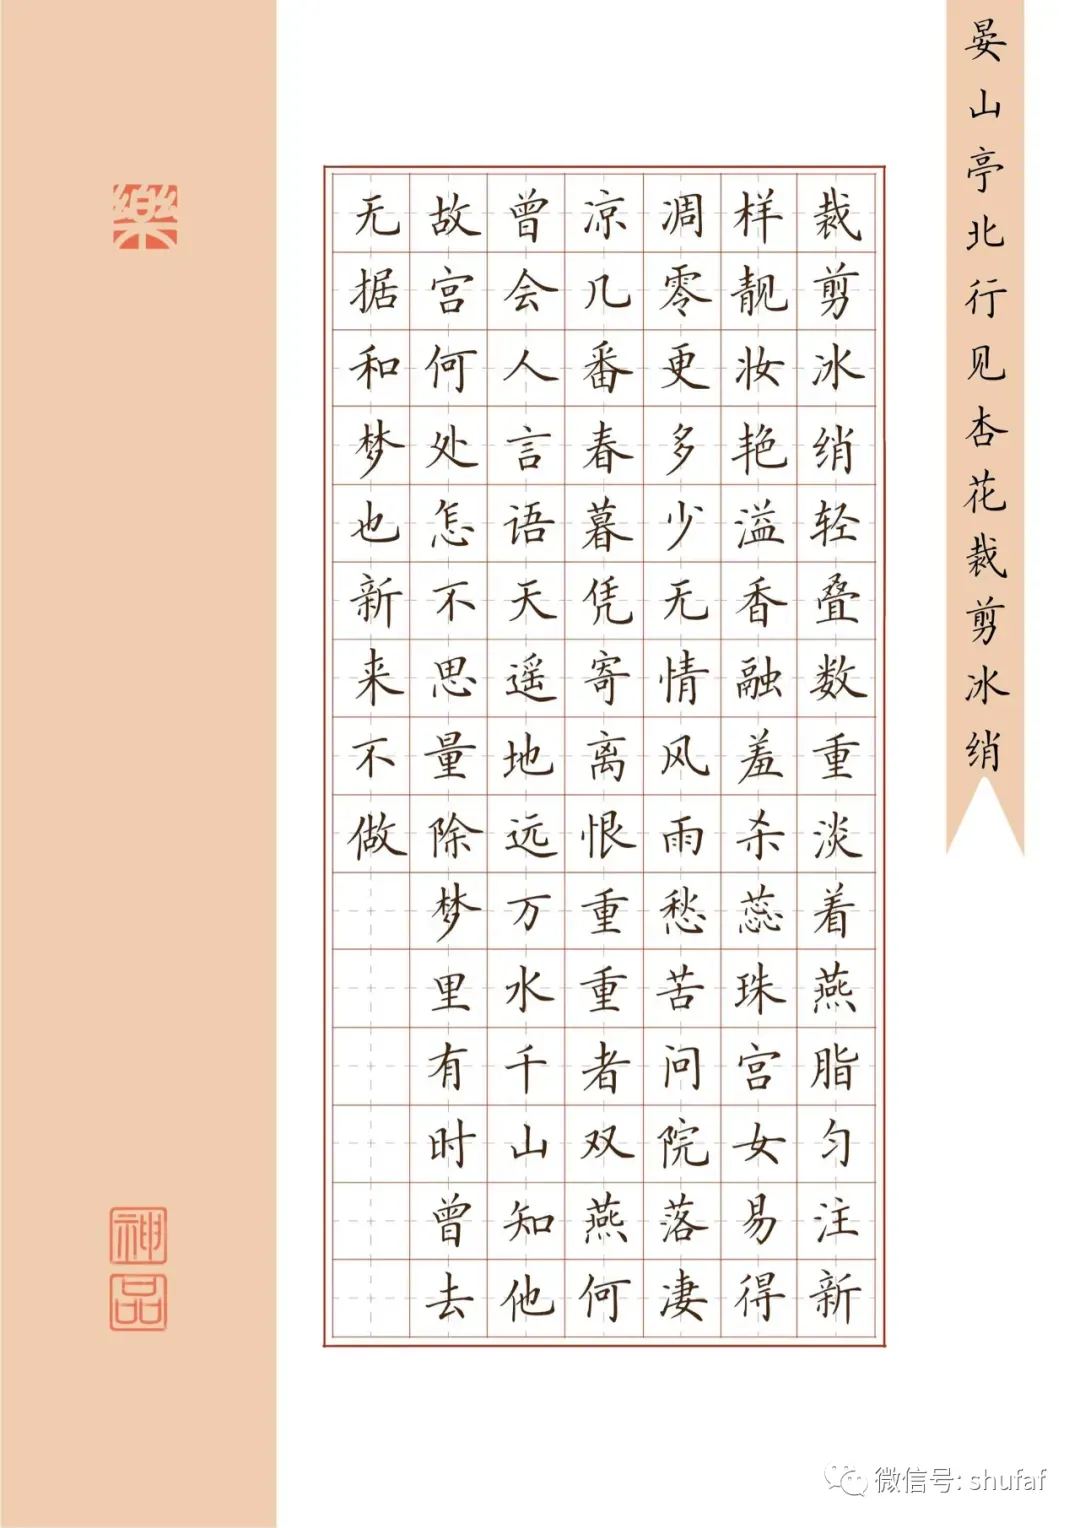 晏山亭北行见杏花裁剪冰绡
裁剪冰绡轻叠数重淡着燕脂匀注新
样靓妆艳溢香融羞杀蕊珠宫女易得
凋零更多少无情风雨愁苦问院落凄
凉几番春暮凭寄离恨重重者双燕何
曾会人言语天遥地远万水千山知他
故宫何处怎不思量除梦里有时曾去
无据和梦也新来不做
樂
神品
微信号: shufaf